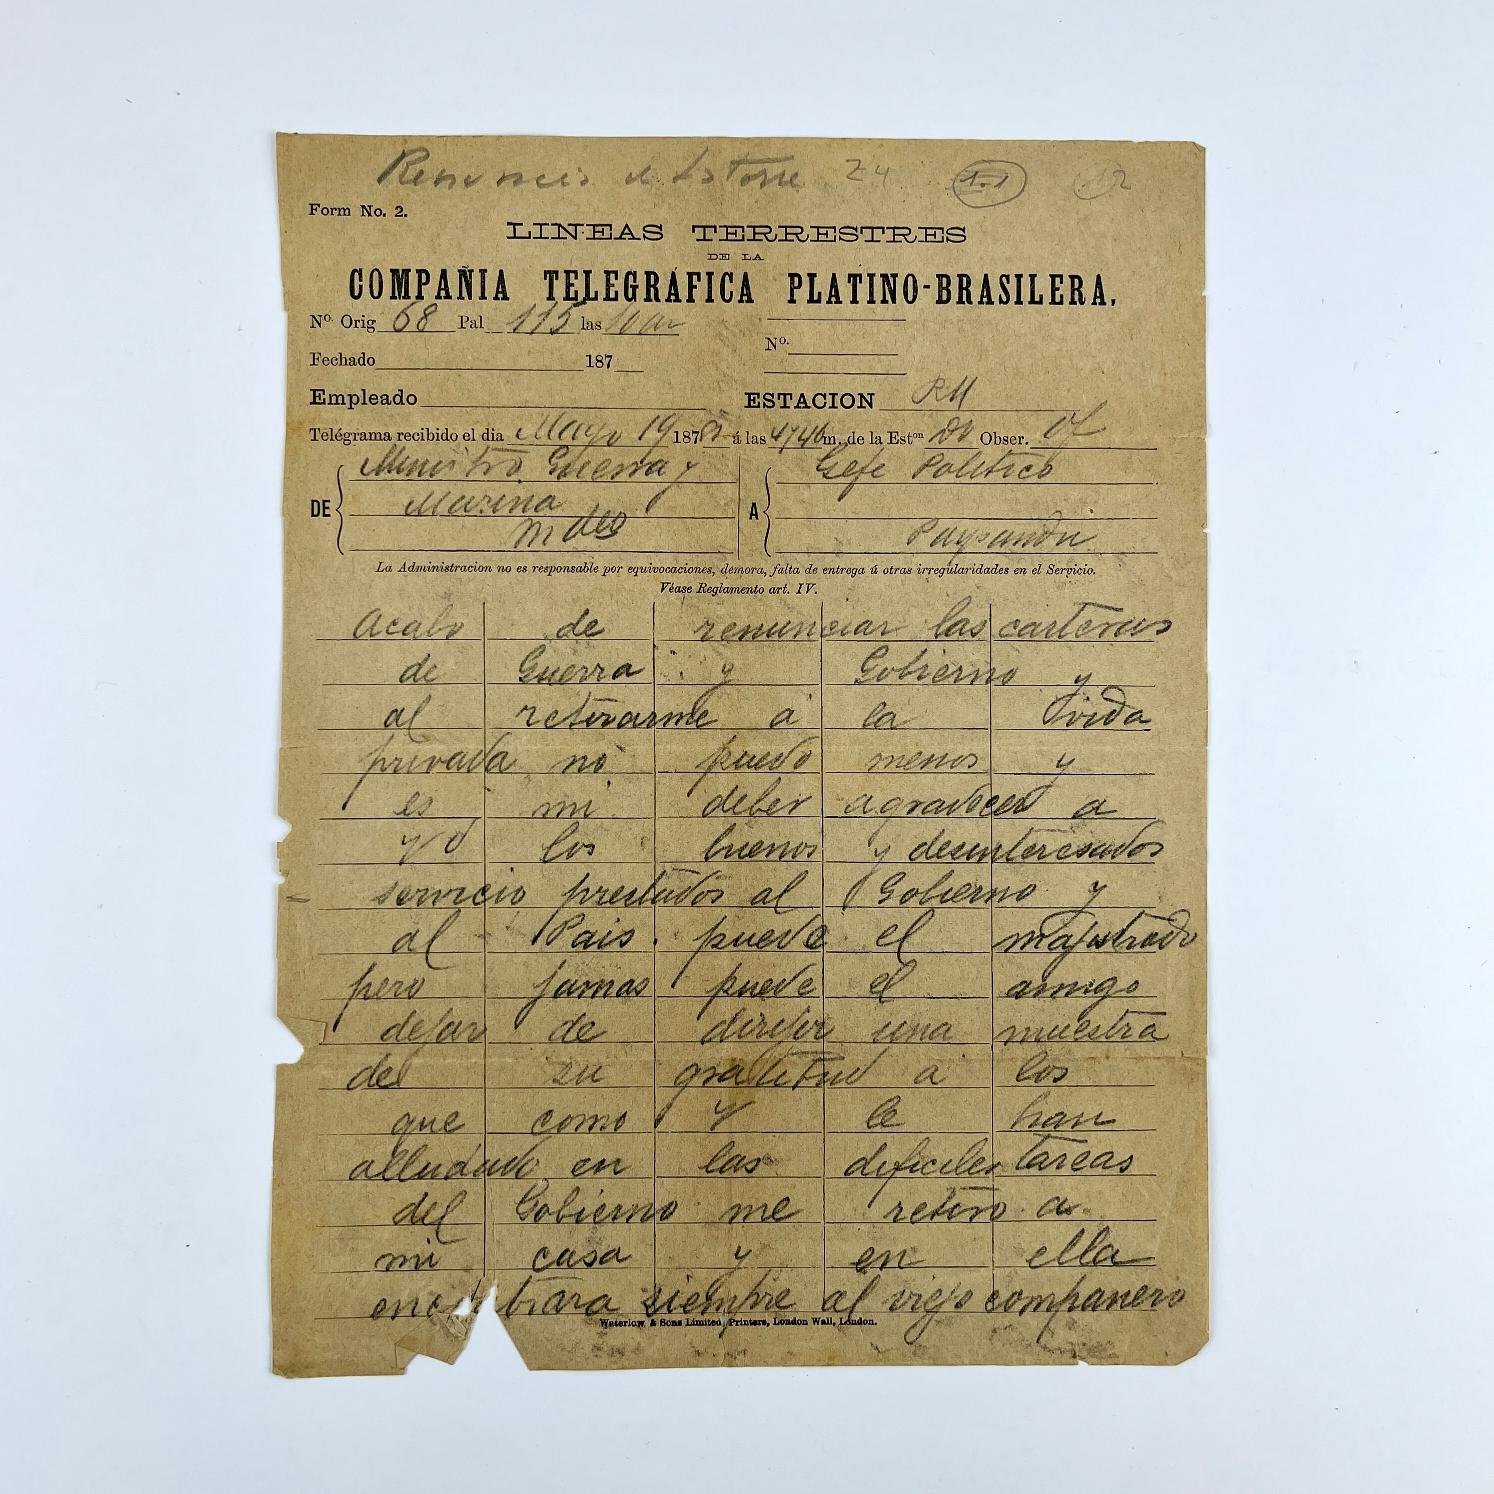 Renuncia de Latorre 24 1.1 12
Form No. 2.
LINEAS TERRESTRES
DE LA
COMPAÑIA TELEGRÁFICA PLATINO-BRASILERA.
No. Orig 68 Pal 115 las
No.
Fechado 187
Empleado ESTACION
Telégrama recibido el dia Mayo 19 187 á las m. de la Eston Obser.
Ministro Guerra y Gefe Politico
DE Marina A
Mdeo Paysandu
La Administracion no es responsable por equivocaciones, demora, falta de entrega ú otras irregularidades en el Servicio.
Véase Reglamento art. IV.
Acabo de renunciar las carteras
de Guerra y Gobierno y
al retirarme á la vida
privada no puedo menos y
es mi deber agradecer a
Vd los buenos y desinteresados
servicio prestados al Gobierno y
al Pais. puede el majistrado
pero jamas puede el amigo
dejar de dirijir una muestra
de su gratitud a los
que como V le han
alludado en las dificiles tareas
del Gobierno me retiro a
mi casa y en ella
encontrara siempre al viejo companero
Waterlow & Sons Limited, Printers, London Wall, London.